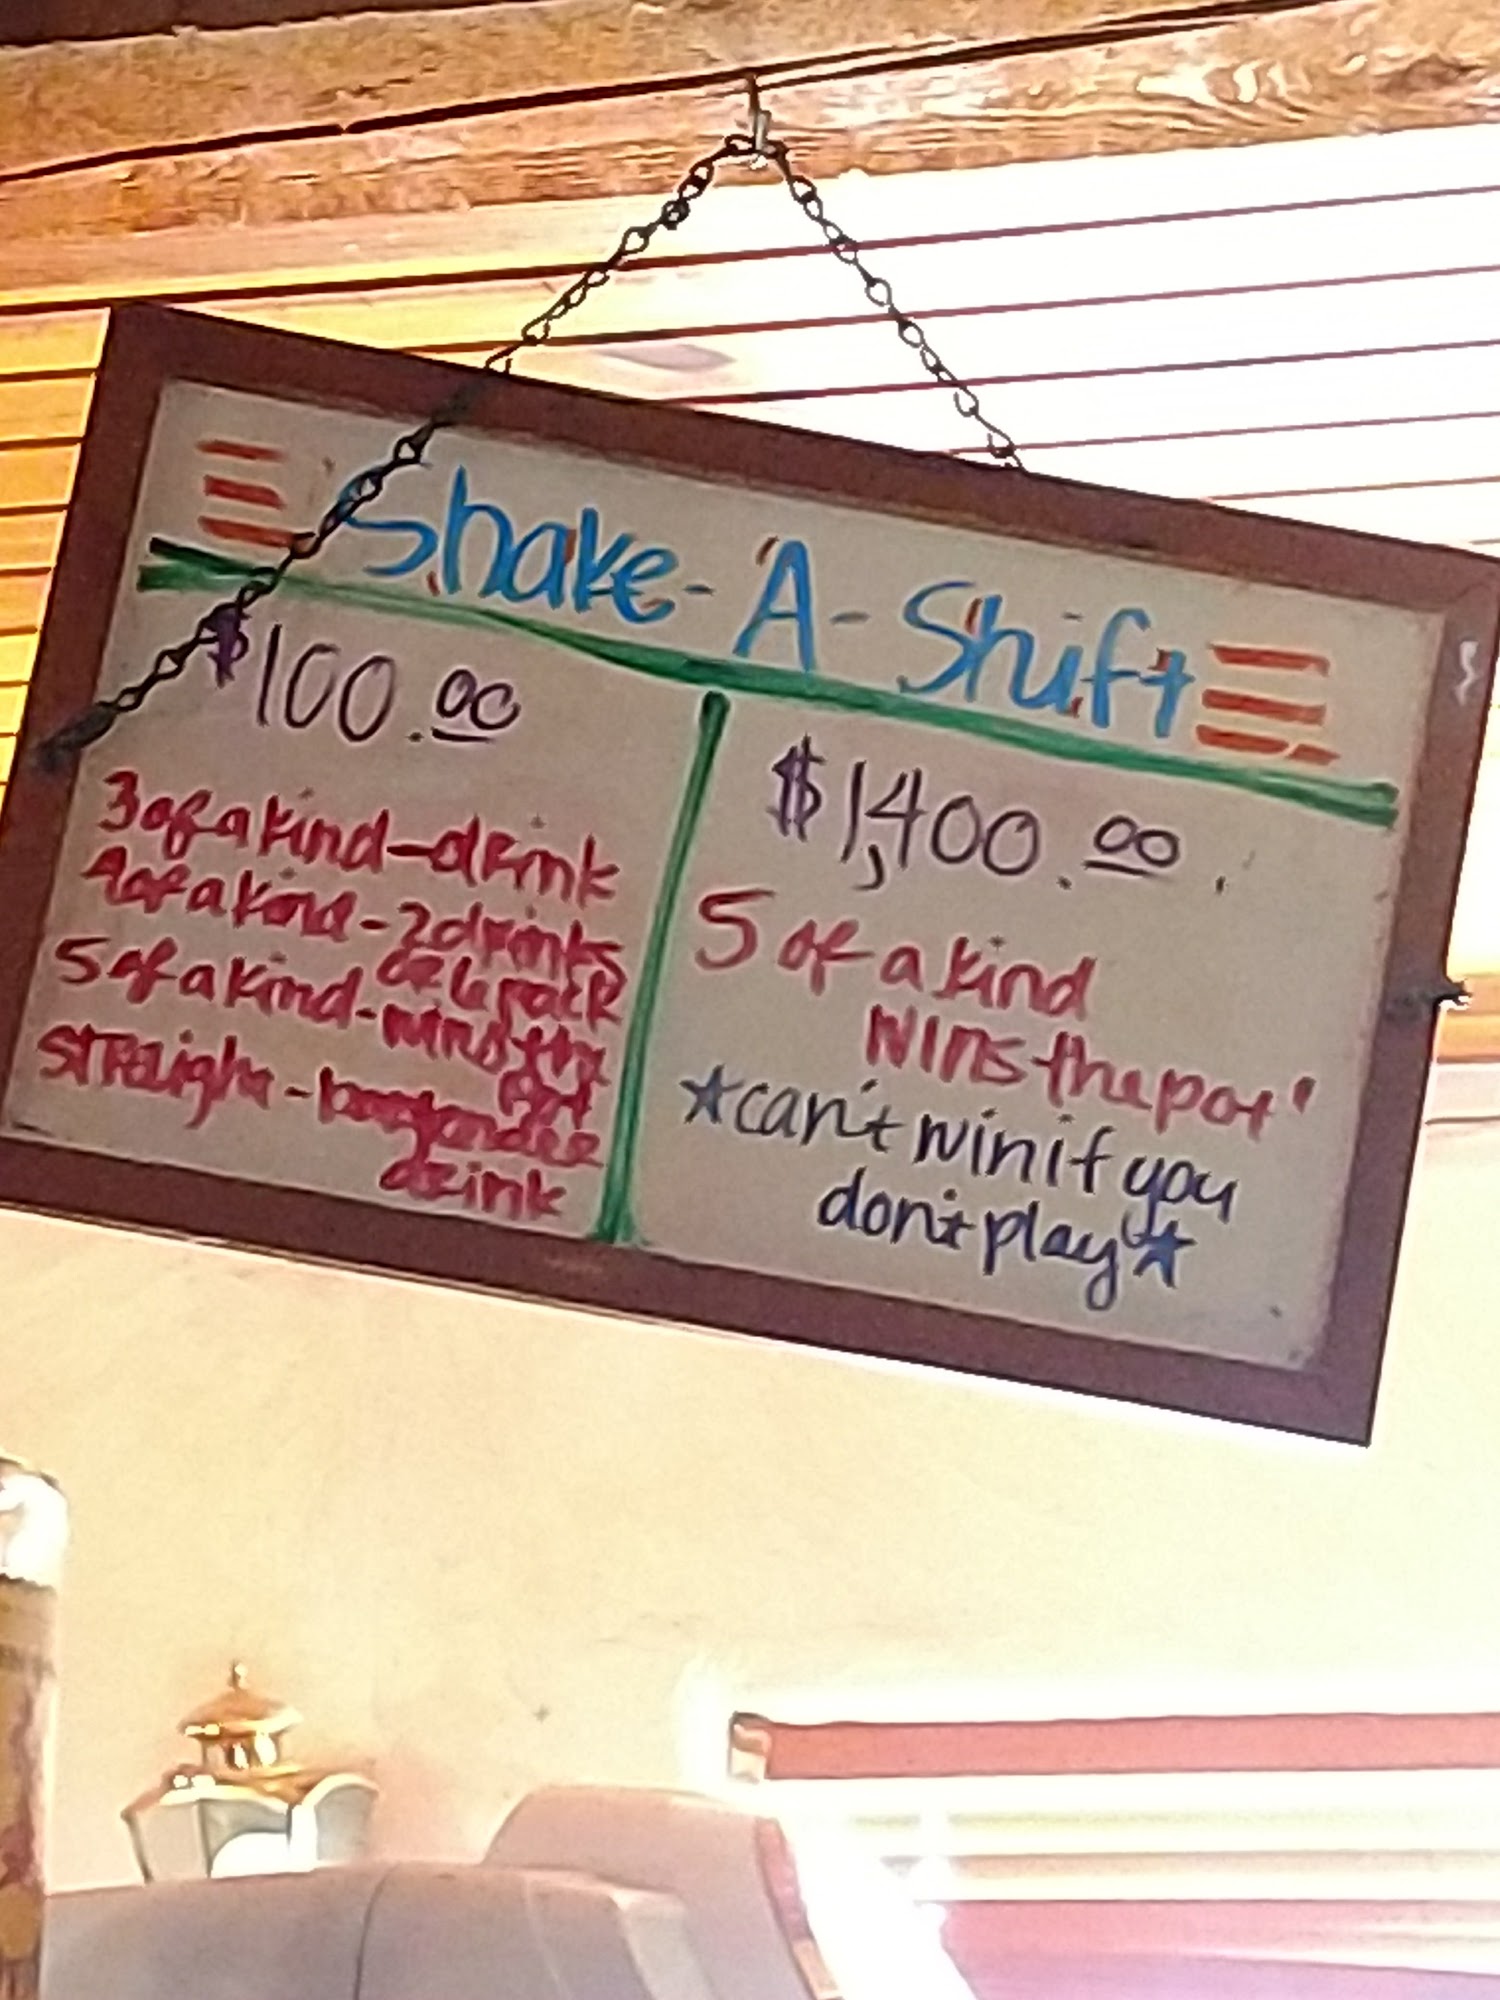 Shake-A-Shift
$100.00
3 of a kind - drink
4 of a kind - 2 drinks
or 6 pack
5 of a kind - wins the
pot
straight - bartender
drink
$1,400.00
5 of a kind
wins the pot!
★can't win if you
don't play★